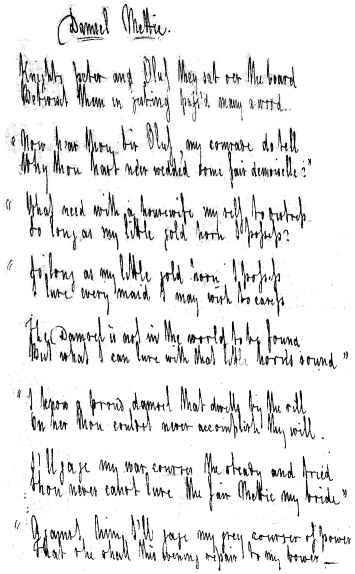 Damsel Mettie.
Knights Peter and Oluf they sat over the board
Betwixt them in jesting pass'd many a word.
"Now hear thou, Sir Oluf, my comrade do tell
Why thou hast never wedded some fair demoiselle?"
"What need with a housewife my self to
So long as my little gold horn I possess?
"So long as my little gold horn I possess
I lure every maid I may wish to caress
The Damsel is not in the world to be found
But what I can lure with that little horn's sound"
"I know a proud damsel that dwells by the rill
On her thou couldst never accomplish thy will.
I'll gage my war courser the steady and tried
Thou never canst lure the fair Mettie my bride"
"Against him I'll gage my grey courser of power
That she shall this evening repair to my bower.—